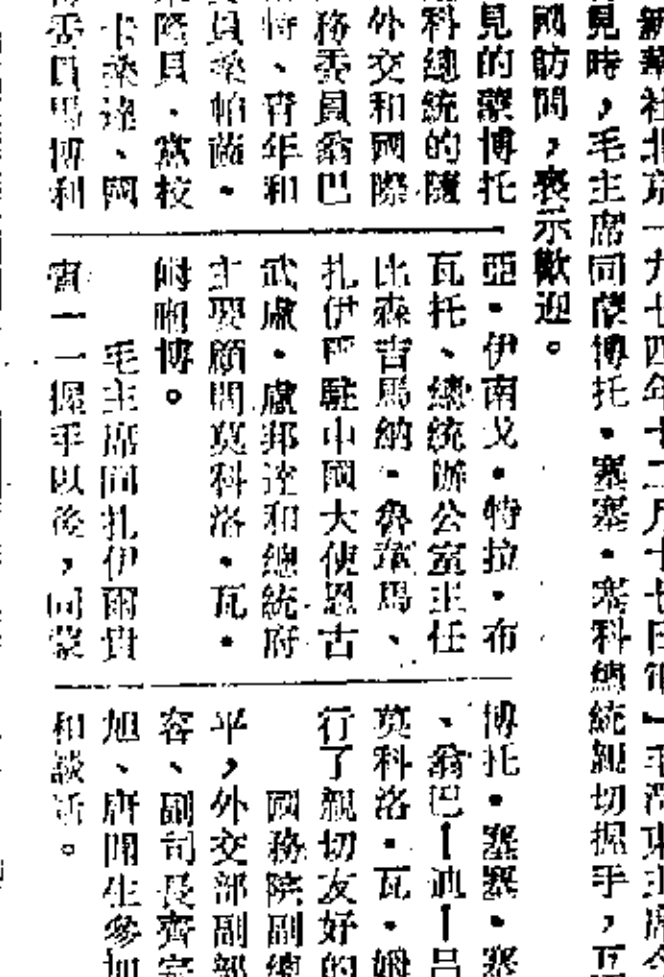 新華社北京一九七四年十二月十七日電』毛澤東主席今
見時，毛主席同蒙博托·塞塞·塞科總統親切握手，互
國訪問，表示歡迎。
見的蒙博托
科總統的隨
外交和國際
務委員翁巴
特、青年和
員桑帕薩·
隆貝、黨校
卡桑達、國
委員馬博利
亞·伊南戈·特拉·布
瓦托、總統辦公室主任
比森吉馬納·魯章馬、
扎伊爾駐中國大使恩古
武盧·盧邦達和總統府
主要顧問莫科洛·瓦·
博。
毛主席同扎伊爾貴
賓一一握手以後，同蒙
博托·塞塞·塞
、翁巴－迪－呂
莫科洛·瓦·姆
行了親切友好的
國務院副總
平，外交部副部
客、副司長齊宗
旭、唐聞生參加
和談話。